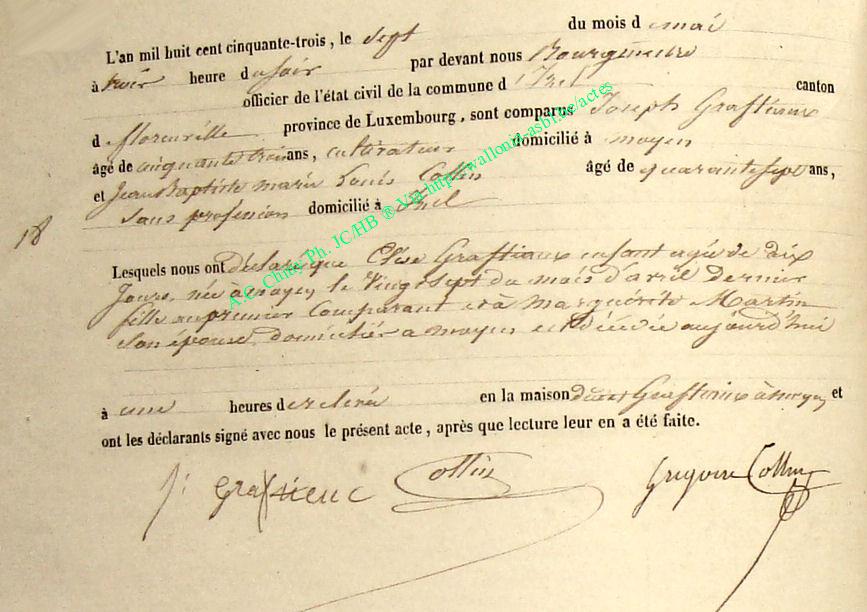 L'an mil huit cent cinquante-trois, le sept du mois d mai
à trois heure du soir par devant nous Bourgmestre
officier de l'état civil de la commune d'Izel canton
d florenville province de Luxembourg, sont comparus Joseph Graftiaux
âgé de cinquante trois ans, cultivateur domicilié à moyen
et Jean Baptiste marie Louis Collin âgé de quarante sept ans,
sans profession domicilié à Izel
18
Lesquels nous ont déclaré que Elise Graftiaux enfant agée de dix
jours, née à moyen le vingt sept du mois d'avril dernier
fille au premier comparant et à Marguérite Martin
son épouse, domiciliés a moyen est décédée aujourd'hui
à une heures de relevée en la maison dudit Graftiaux à moyen, et
ont les déclarants signé avec nous le présent acte, après que lecture leur en a été faite.
j: Graftieuc Collin Grégoire Collin
A.C. Chiny Ph. JC/HB ® Via http://wallonia-asbl.be/actes